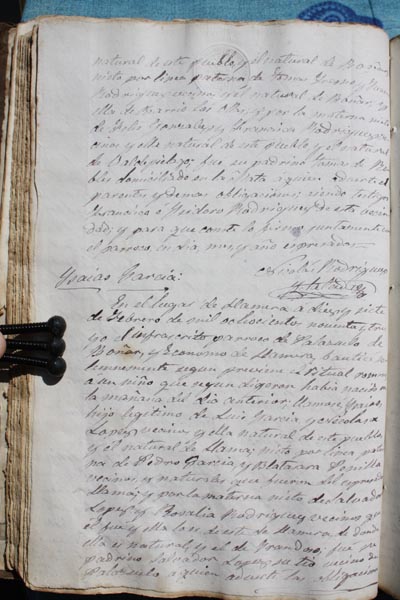 natural de este pueblo, y el natural de Boñar,
nieto por linea paterna de
Rodriguez vecinos y el natural de Boñar, y
ella de Barrio las Ollas; y por la materna nieto
de Gonzalez, y Francisca Rodriguez ve-
cinos y ella natural de este pueblo y el natural
de Valdepielago; fue su padrino Tomas de Ro-
bles domiciliado en la Mata a quien adverti el
parentesco y demas obligaciones; siendo testigos
Francisco e Ysidoro Rodriguez de este vecin-
dad; y para que conste lo firmo juntamente con
el parroco, en dia, mes, y año espresados.
Nicolás Rodriguez
Ysaias Garcia:
En el lugar de Llamera a diez y siete
de Febrero de mil ochocientos noventa y tres
yo el infrascrito parroco de Palazuelo de
Boñar, y Economo de Llamera, bautice so-
lemnemente segun previene el Ritual romano
a un niño que segun digeron habia nacido en
la mañana del dia anterior: llamose Ysaias,
hijo legitimo de Luis Garcia y Nicolasa
Lopez, vecina y ella natural de este pueblo
y el natural de Llama; nieto por linea pater-
na de Pedro Garcia y
vecinos, y naturales que fueron del espresado
Llama; y por la materna nieto de Salvador
Lopez y Rosalia Rodriguez, vecinos que
el fue y ella lo es de este de Llamera de donde
ella es natural, y el de Grandoso; fue su
padrino Salvador Lopez, su tio vecino de
Palazuelo a quien adverti las obligaciones